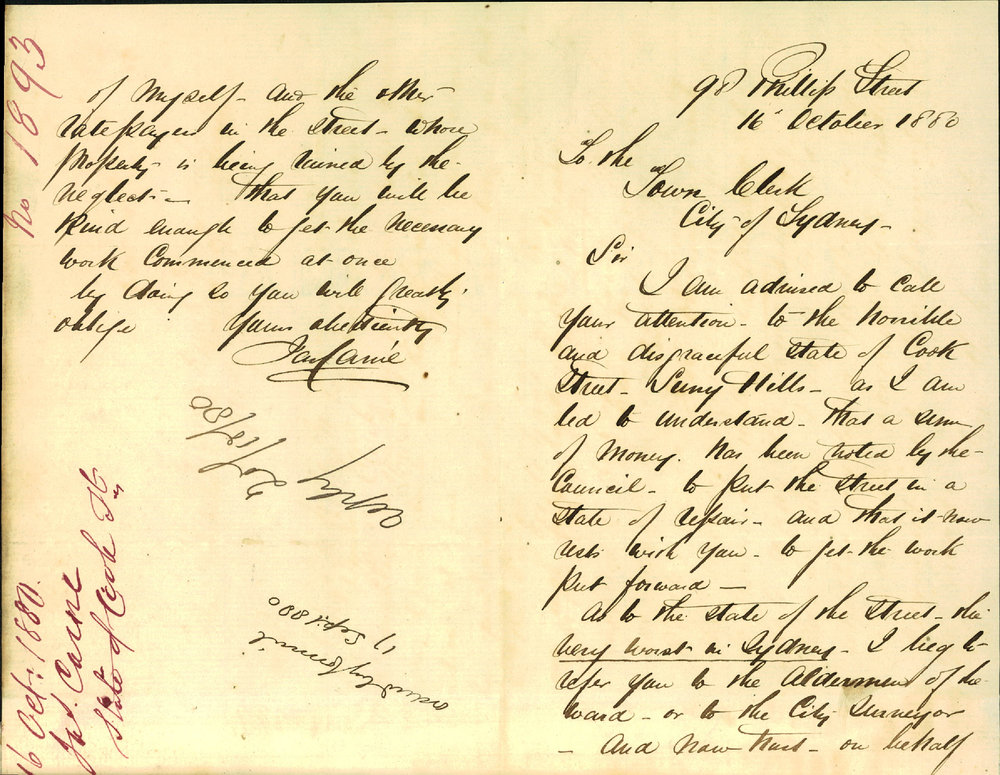 98 Phillip Street
16 October 1880
To the
Town Clerk
City of Sydney -
Sir
I am advised to call
your attention - to the horrible
and disgraceful state of Cook
Street - Surry Hills - as I am
led to understand - that a sum
of money. has been voted by the
Council - to put the street in a
state of repair - and that it now
rests with you - to get the work
put forward -
As to the state of the street - the
very worst in Sydney - I beg to
refer you to the Aldermen of the
ward - or to the City Surveyor
- and now trust - on behalf
of myself - and the other
ratepayers in the street - whose
property is being ruined by the
neglect - that you will be
kind enough to get the necessary
work commenced at once
by doing so you will greatly
oblige yours obediently
Jas Carne
reply
by
17 Sept 1880
No 1893
16 Oct: 1880.
Jas. Carne
State of Cook St